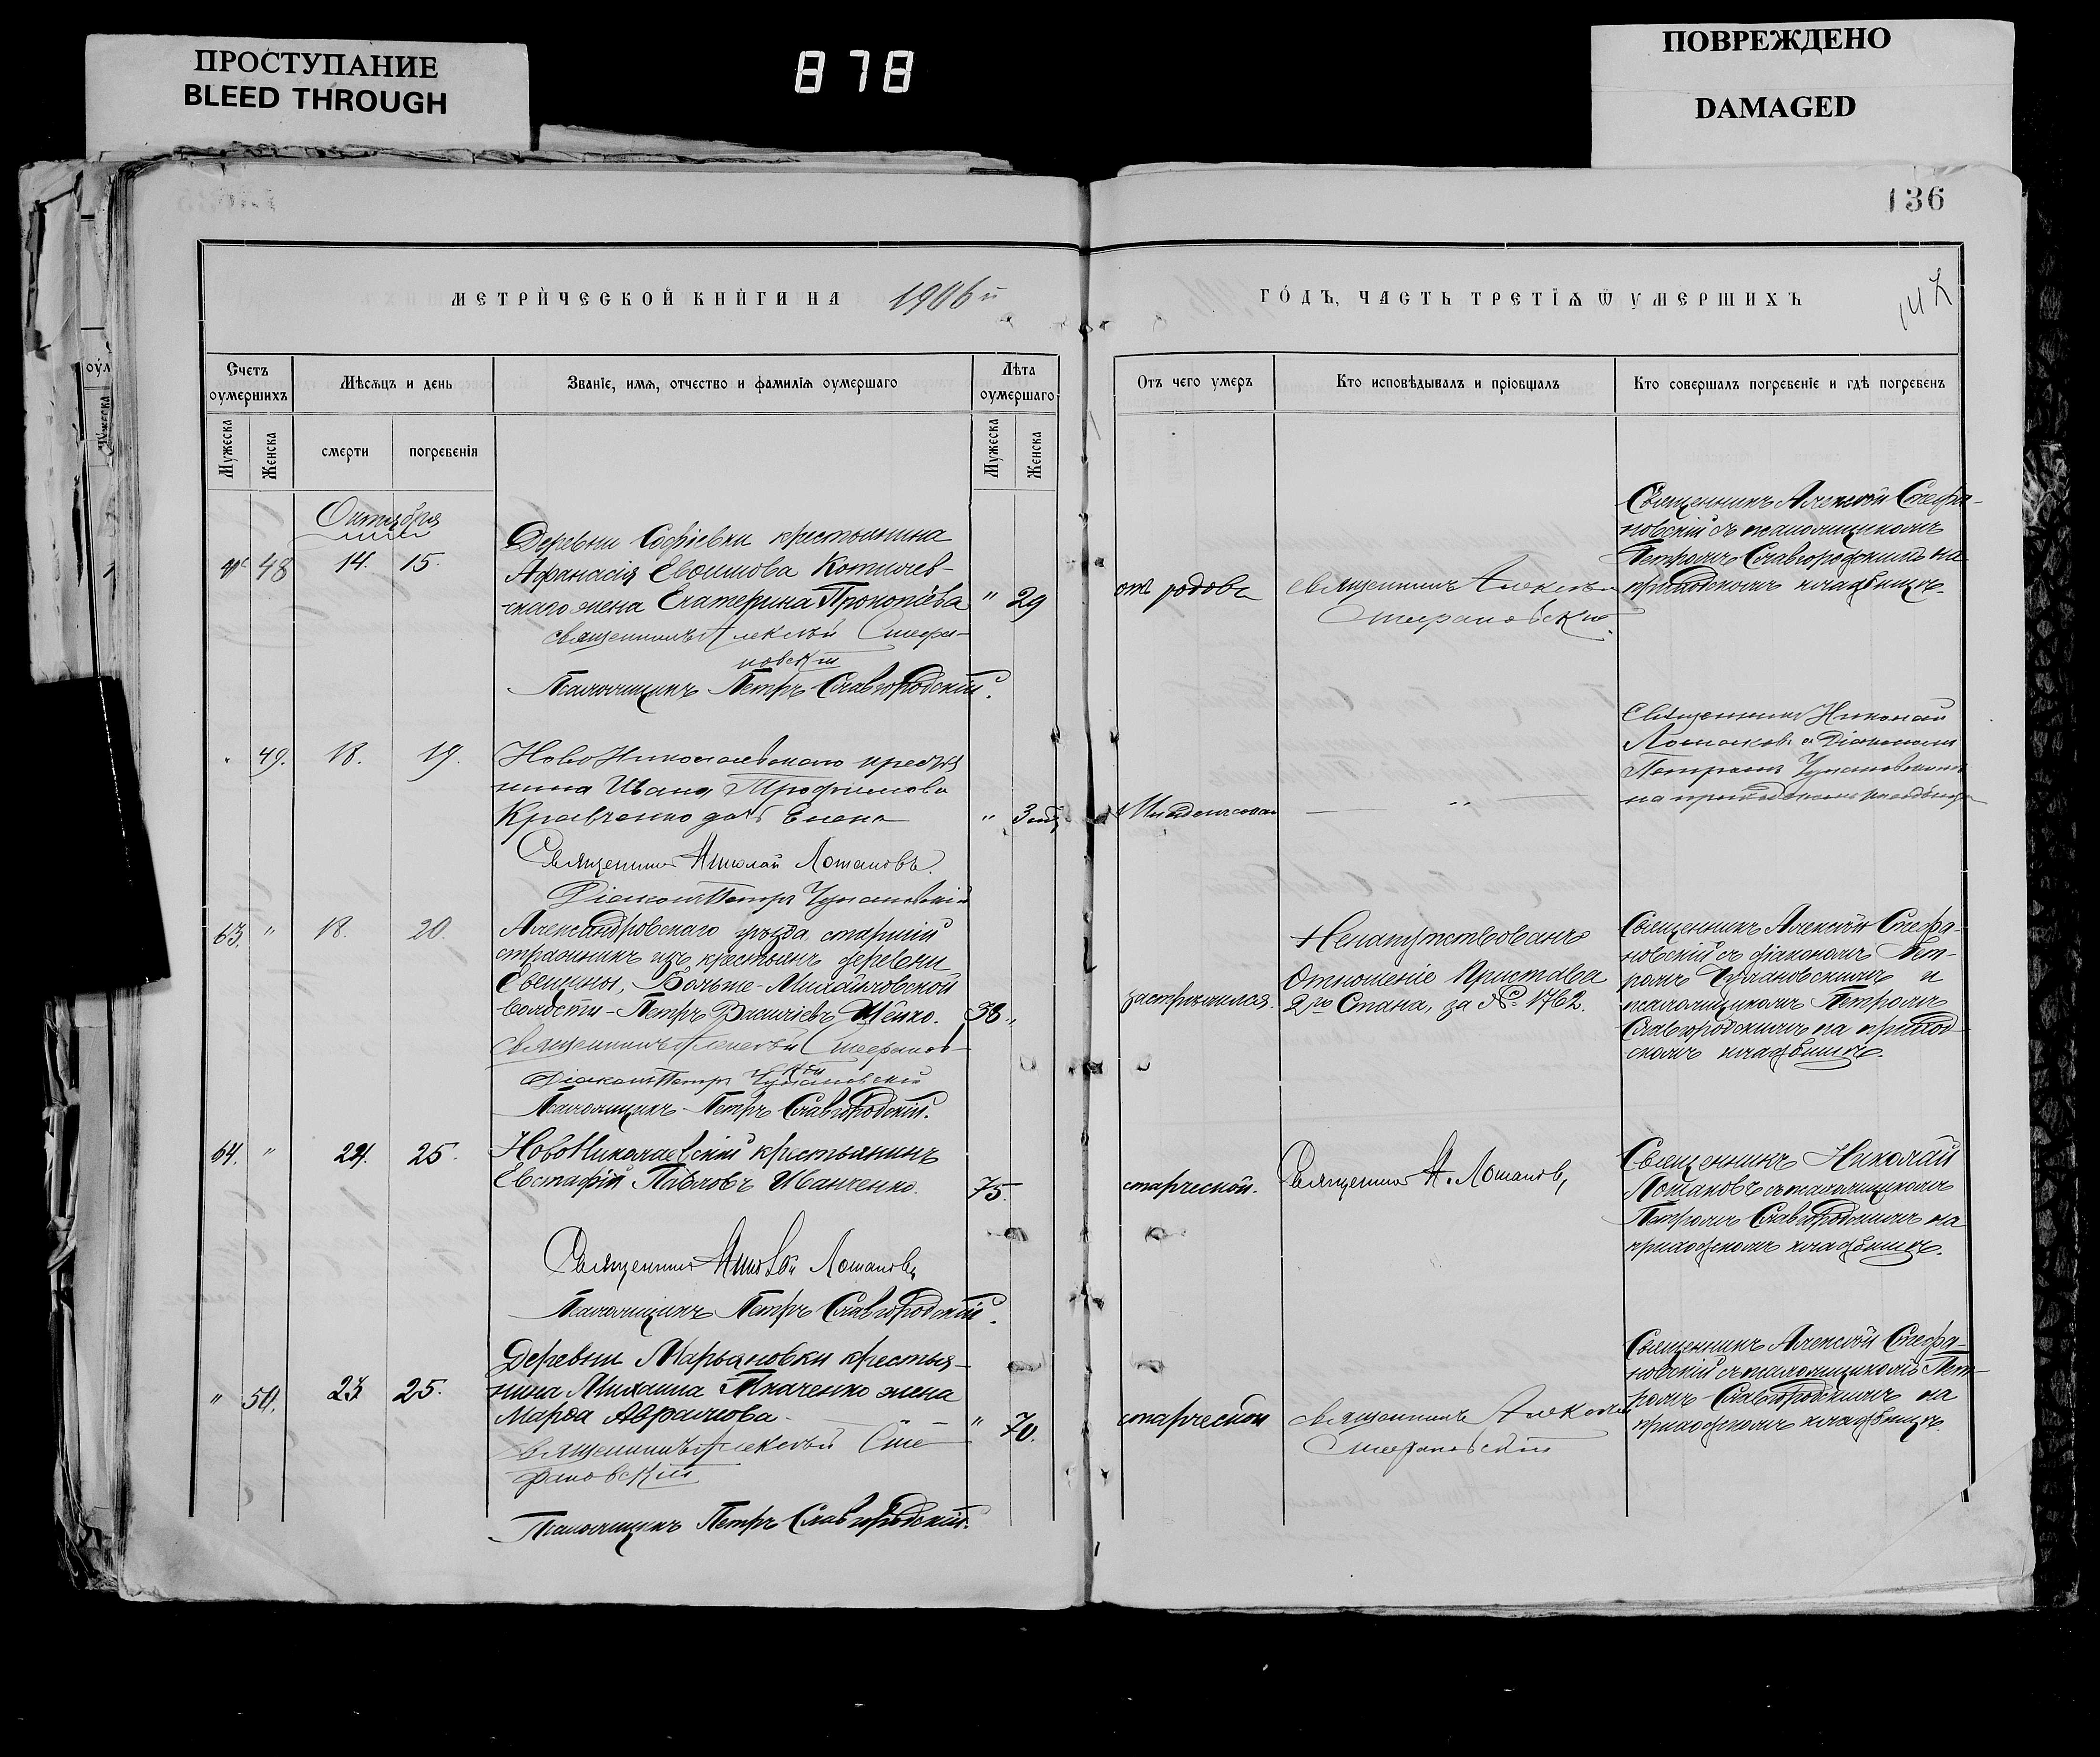 ПРОСТУПАНИЕ
BLEED THROUGH
878
ПОВРЕЖДЕНО
DAMAGED
136
МЕТРИ́ЧЕСКОЙ КНИ́ГИ НА 1906 й
ГО́ДЪ, ЧАСТЬ ТРЕТІѦ Ѿ УМЕРШИХЪ
Счетъ оумершихъ
Мѣсѧцъ и день
Званіе, имѧ, отчество и фамиліѧ оумершаго
Лѣта оумершаго
Отъ чего умеръ
Кто исповѣдывалъ и пріобщалъ
Кто совершалъ погребеніе и гдѣ погребенъ
Мужеска
Женска
смерти
погребенія
Мужеска
Женска
Октября
48 14. 15.
Деревни Софіевки крестьянина
Афанасія Евфимова
скаго жена Екатерина Прокопіева " 29
священникъ Алексѣй Стефа-
новскій
Псаломщикъ Петръ Славгородскій.
отъ родовъ
священникъ Алексѣй
Стефановскій
Священникъ Алексѣй Стефа-
новскій съ псаломщикомъ
Петромъ Славгородскимъ на
приходскомъ кладбищѣ.
" 49. 18. 19.
Ново Николаевскаго крестья
нина Ивана Трофимова
Кравченко дочь Елена " 3
Священникъ Николай Лотаковъ.
Діаконъ Петръ
—— " ——
Священникъ Николай
Лотаковъ с Діакономъ
Петромъ
на приходскомъ кладбищѣ
63. " 18. 20.
Александровскаго уѣзда старшій
стражникъ изъ крестьянъ деревни
Больше-Михайловской
волости - Петръ Васильевъ Шейко. 38 "
священникъ Алексѣй Стефанов-
скій
Діаконъ Петръ
Псаломщикъ Петръ Славгородскій.
застрѣлился.
Ненапутствованъ
Отношеніе Пристава
2го Стана, за № 1762.
Священникъ Алексѣй Стефа-
новскій съ діакономъ Пет-
ромъ и
псаломщикомъ Петромъ
Славгородскимъ на приход-
скомъ кладбищѣ.
64. " 24. 25.
НовоНиколаевскій крестьянинъ
Евстафій Павловъ Иванченко. 75.
Священникъ Николай Лотаковъ
Псаломщикъ Петръ Славгородскій.
старческой.
Священникъ Н. Лотаковъ
Священникъ Николай
Лотаковъ съ псаломщикомъ
Петромъ Славгородскимъ на
приходскомъ кладбищѣ.
" 50. 23 25.
Деревни Марьяновки крестья-
нина Михаила Ткаченко жена
Марфа Абрамова " 70.
Священникъ Алексѣй Сте-
фановскій
Псаломщикъ Петръ Славгородскій.
старческой
священникъ Алексѣй
Стефановскій
Священникъ Алексѣй Стефа-
новскій съ псаломщикомъ Пет-
ромъ Славгородскимъ на
приходскомъ кладбищѣ.